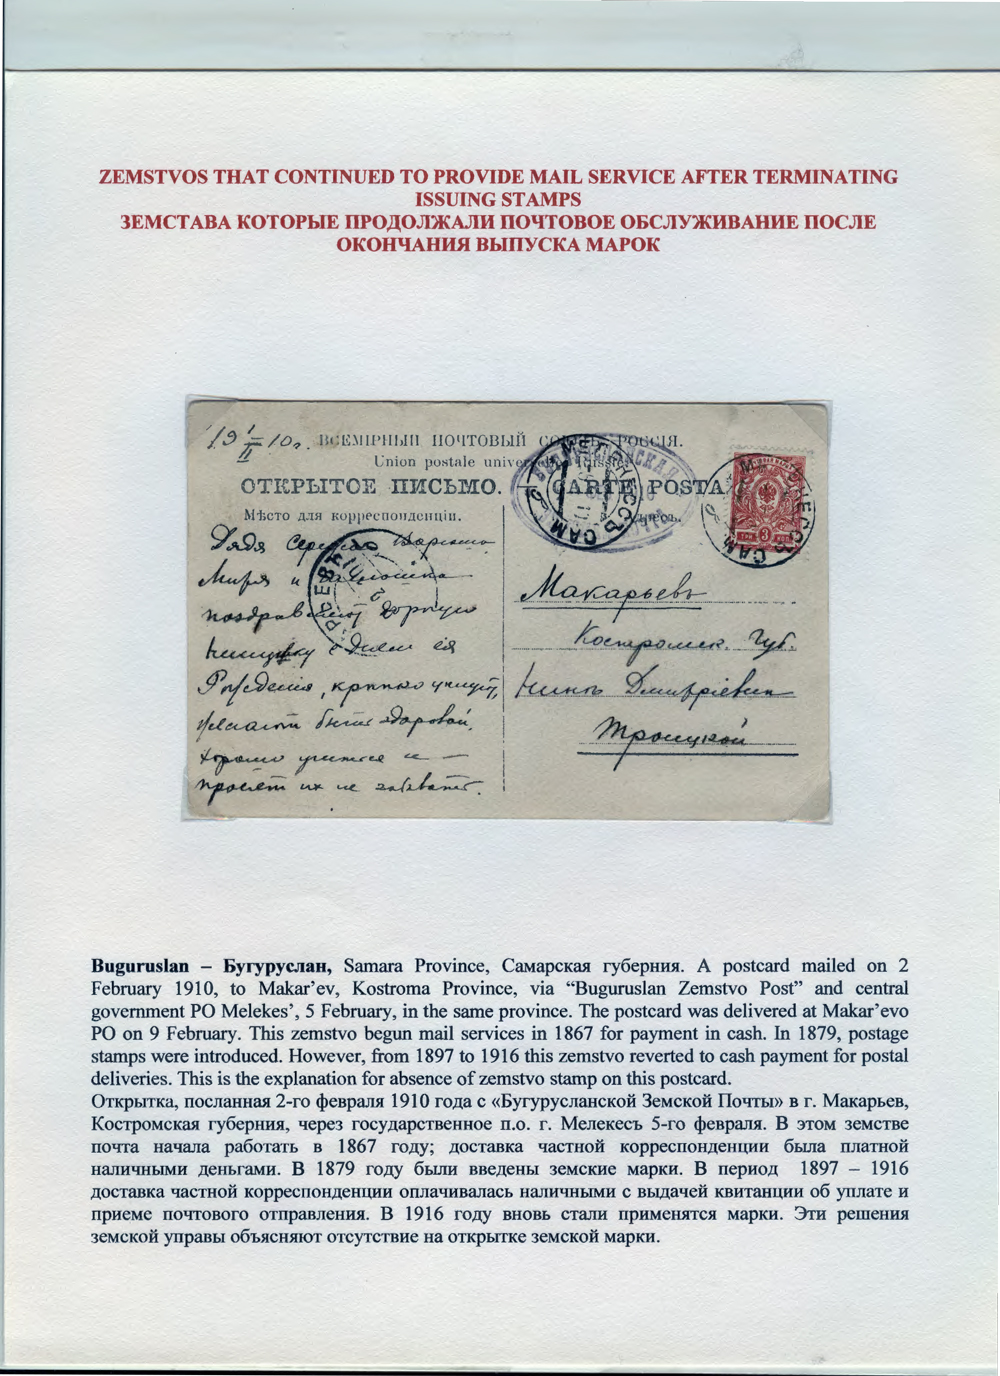 ZEMSTVOS THAT CONTINUED TO PROVIDE MAIL SERVICE AFTER TERMINATING
ISSUING STAMPS
ЗЕМСТАВА КОТОРЫЕ ПРОДОЛЖАЛИ ПОЧТОВОЕ ОБСЛУЖИВАНИЕ ПОСЛЕ
ОКОНЧАНИЯ ВЫПУСКА МАРОК
19 I/II 10 г. ВСЕМІРНЫЙ ПОЧТОВЫЙ РОССІЯ.
Union postale
ОТКРЫТОЕ ПИСЬМО. — CARTE POSTA
Мѣсто для корреспонденціи.
МЕЛЕКЕССЪ САМ.
ТРИ 3 КОП
Дядя
и
дорогую
Ниночку с Днем ея
Рожденія, крепко
быть здоровой,
хорошо учиться и —
просят их не забывать.
Макарьевъ
Костромск. Губ.
Нинѣ Дмитріевнѣ
Троицкой
Buguruslan – Бугуруслан, Samara Province, Самарская губерния. A postcard mailed on 2
February 1910, to Makar’ev, Kostroma Province, via “Buguruslan Zemstvo Post” and central
government PO Melekes’, 5 February, in the same province. The postcard was delivered at Makar’evo
PO on 9 February. This zemstvo begun mail services in 1867 for payment in cash. In 1879, postage
stamps were introduced. However, from 1897 to 1916 this zemstvo reverted to cash payment for postal
deliveries. This is the explanation for absence of zemstvo stamp on this postcard.
Открытка, посланная 2-го февраля 1910 года с «Бугурусланской Земской Почты» в г. Макарьев,
Костромская губерния, через государственное п.о. г. Мелекесъ 5-го февраля. В этом земстве
почта начала работать в 1867 году; доставка частной корреспонденции была платной
наличными деньгами. В 1879 году были введены земские марки. В период 1897 – 1916
доставка частной корреспонденции оплачивалась наличными с выдачей квитанции об уплате и
приеме почтового отправления. В 1916 году вновь стали применятся марки. Эти решения
земской управы объясняют отсутствие на открытке земской марки.